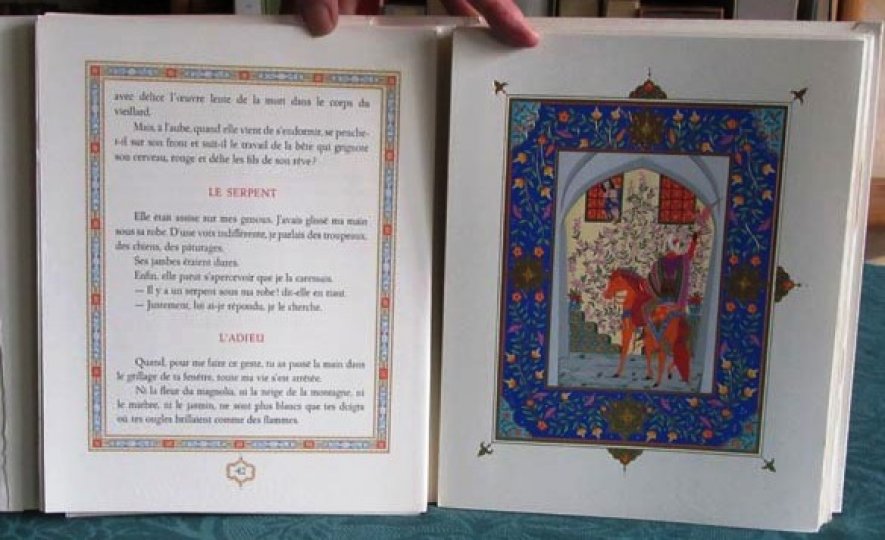 avec délice l'œuvre lente de la mort dans le corps du
vieillard.
Mais, à l'aube, quand elle vient de s'endormir, se penche-
t-il sur son front et suit-il le travail de la bête qui grignote
son cerveau, rouge et délie les fils de son rêve ?
LE SERPENT
Elle était assise sur mes genoux. J'avais glissé ma main
sous sa robe. D'une voix indifférente, je parlais des troupeaux,
des chiens, des pâturages.
Ses jambes étaient dures.
Enfin, elle parut s'apercevoir que je la caressais.
— Il y a un serpent sous ma robe ! dit-elle en riant.
— Justement, lui ai-je répondu, je le cherche.
L'ADIEU
Quand, pour me faire ce geste, tu as passé la main dans
le grillage de ta fenêtre, toute ma vie s'est arrêtée.
Ni la fleur du magnolia, ni la neige de la montagne, ni
le marbre, ni le jasmin, ne sont plus blancs que tes doigts
où tes ongles brillaient comme des flammes.
42